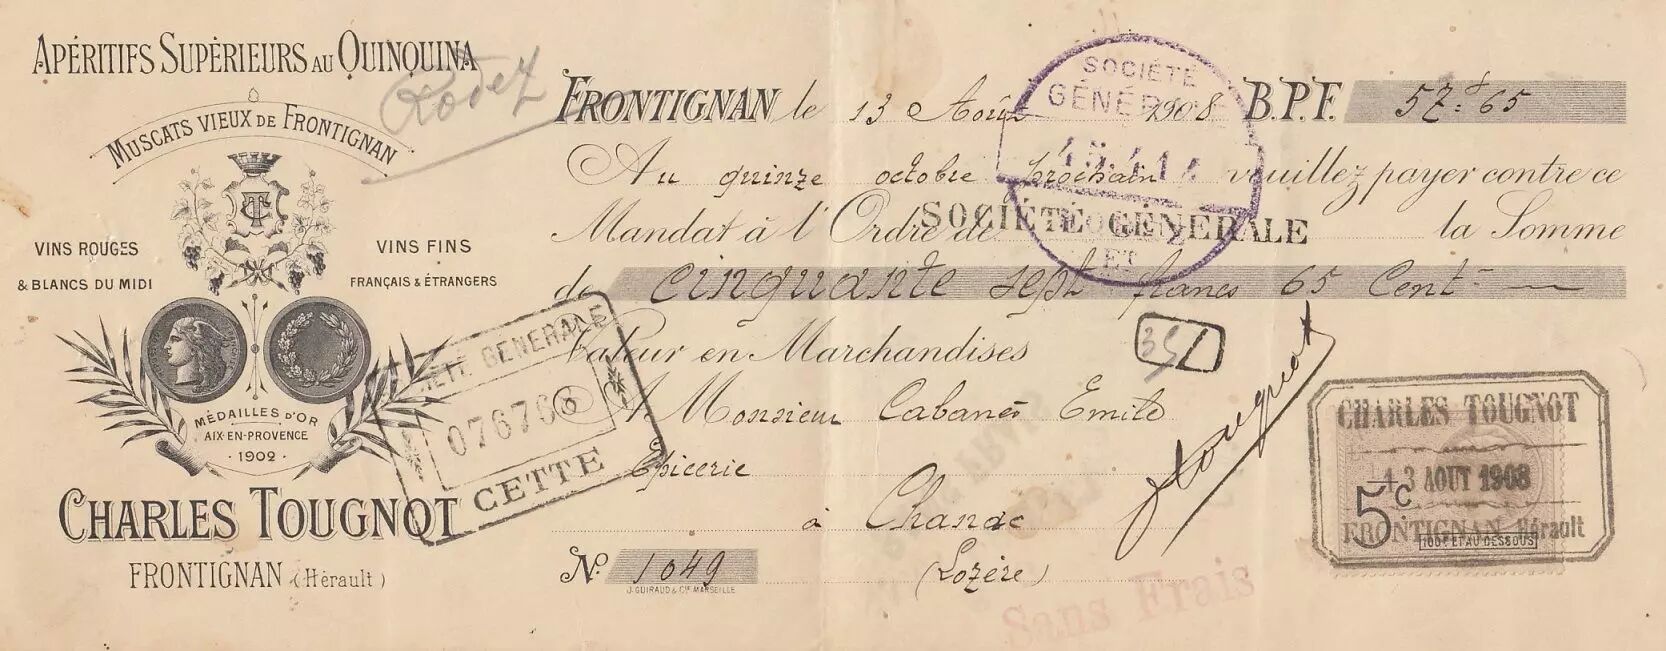 APÉRITIFS SUPÉRIEURS AU QUINQUINA
Rodez
MUSCATS VIEUX DE FRONTIGNAN
CT
VINS ROUGES
& BLANCS DU MIDI
VINS FINS
FRANÇAIS & ÉTRANGERS
MÉDAILLES D'OR
AIX-EN-PROVENCE
1902
CHARLES TOUGNOT
FRONTIGNAN (Hérault)
FRONTIGNAN le 13 Août 1908 B.P.F. 57f 65
Au quinze octobre prochain veuillez payer contre ce
Mandat à l'Ordre de SOCIÉTÉ GÉNÉRALE la Somme
de cinquante sept francs 65 Cent
Valeur en Marchandises
A Monsieur Cabanès Emile
Epicerie
à Chanac
(Lozère)
No. 1049
J. GUIRAUD & Cie MARSEILLE
SOCIÉTÉ
GÉNÉRALE
GENERALE
CETTE
35
Ch Tougnot
CHARLES TOUGNOT
13 AOUT 1908
FRONTIGNAN Hérault
5c
100F ET AU DESSOUS
Sans Frais